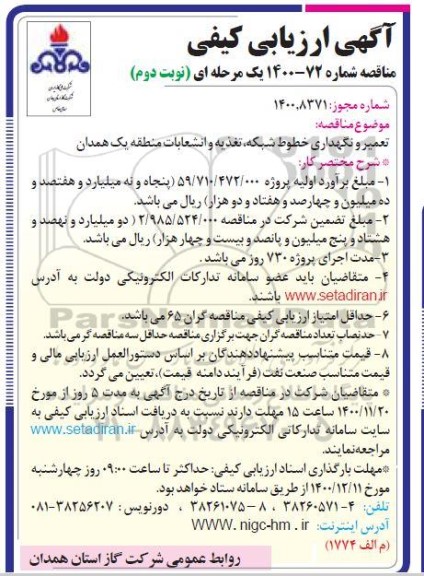 آگهی ارزیابی کیفی
مناقصه شماره ۷۲-۱۴۰۰ یک مرحله ای (نوبت دوم)
شماره مجوز: ۱۴۰۰.۸۳۷۱
موضوع مناقصه:
تعمیر و نگهداری خطوط شبکه، تغذیه و انشعابات منطقه یک همدان
* شرح مختصر کار:
۱- مبلغ برآورد اولیه پروژه ۵۹/۷۱۰/۴۷۲/۰۰۰ (پنجاه و نه میلیارد و هفتصد و
ده میلیون و چهارصد و هفتاد و دو هزار) ریال می باشد.
۲- مبلغ تضمین شرکت در مناقصه ۲/۹۸۵/۵۲۴/۰۰۰ ( دو میلیارد و نهصد و
هشتاد و پنج میلیون و پانصد و بیست و چهار هزار) ریال می باشد.
۳-مدت اجرای پروژه ۷۳۰ روز می باشد.
۴- متقاضیان باید عضو سامانه تدارکات الکترونیکی دولت به آدرس
www.setadiran.ir باشند.
۶- حداقل امتیاز ارزیابی کیفی مناقصه گران ۶۵ می باشد.
۷- حدنصاب تعداد مناقصه گران جهت برگزاری مناقصه حداقل سه مناقصه گر می باشد.
۸- قیمت متناسب پیشنهاددهندگان بر اساس دستورالعمل ارزیابی مالی و
قیمت متناسب صنعت نفت (فرآیند دامنه قیمت)، تعیین می گردد.
* متقاضیان شرکت در مناقصه از تاریخ درج آگهی به مدت ۵ روز از مورخ
۱۴۰۰/۱۱/۲۰ ساعت ۱۵ مهلت دارند نسبت به دریافت اسناد ارزیابی کیفی به
سایت سامانه تدارکاتی الکترونیکی دولت به آدرس www.setadiran.ir
مراجعه نمایند.
*مهلت بارگذاری اسناد ارزیابی کیفی: حداکثر تا ساعت ۰۹:۰۰ روز چهارشنبه
مورخ ۱۴۰۰/۱۲/۱۱ از طریق سامانه ستاد خواهد بود.
تلفن: ۴-۳۸۲۶۰۵۷۱ ، ۸-۳۸۲۶۱۰۷۵ ، دورنویس: ۳۸۲۵۶۲۰۷-۰۸۱
آدرس اینترنت: WWW. nigc-hm . ir
(م الف ۱۷۷۴)
روابط عمومی شرکت گاز استان همدان